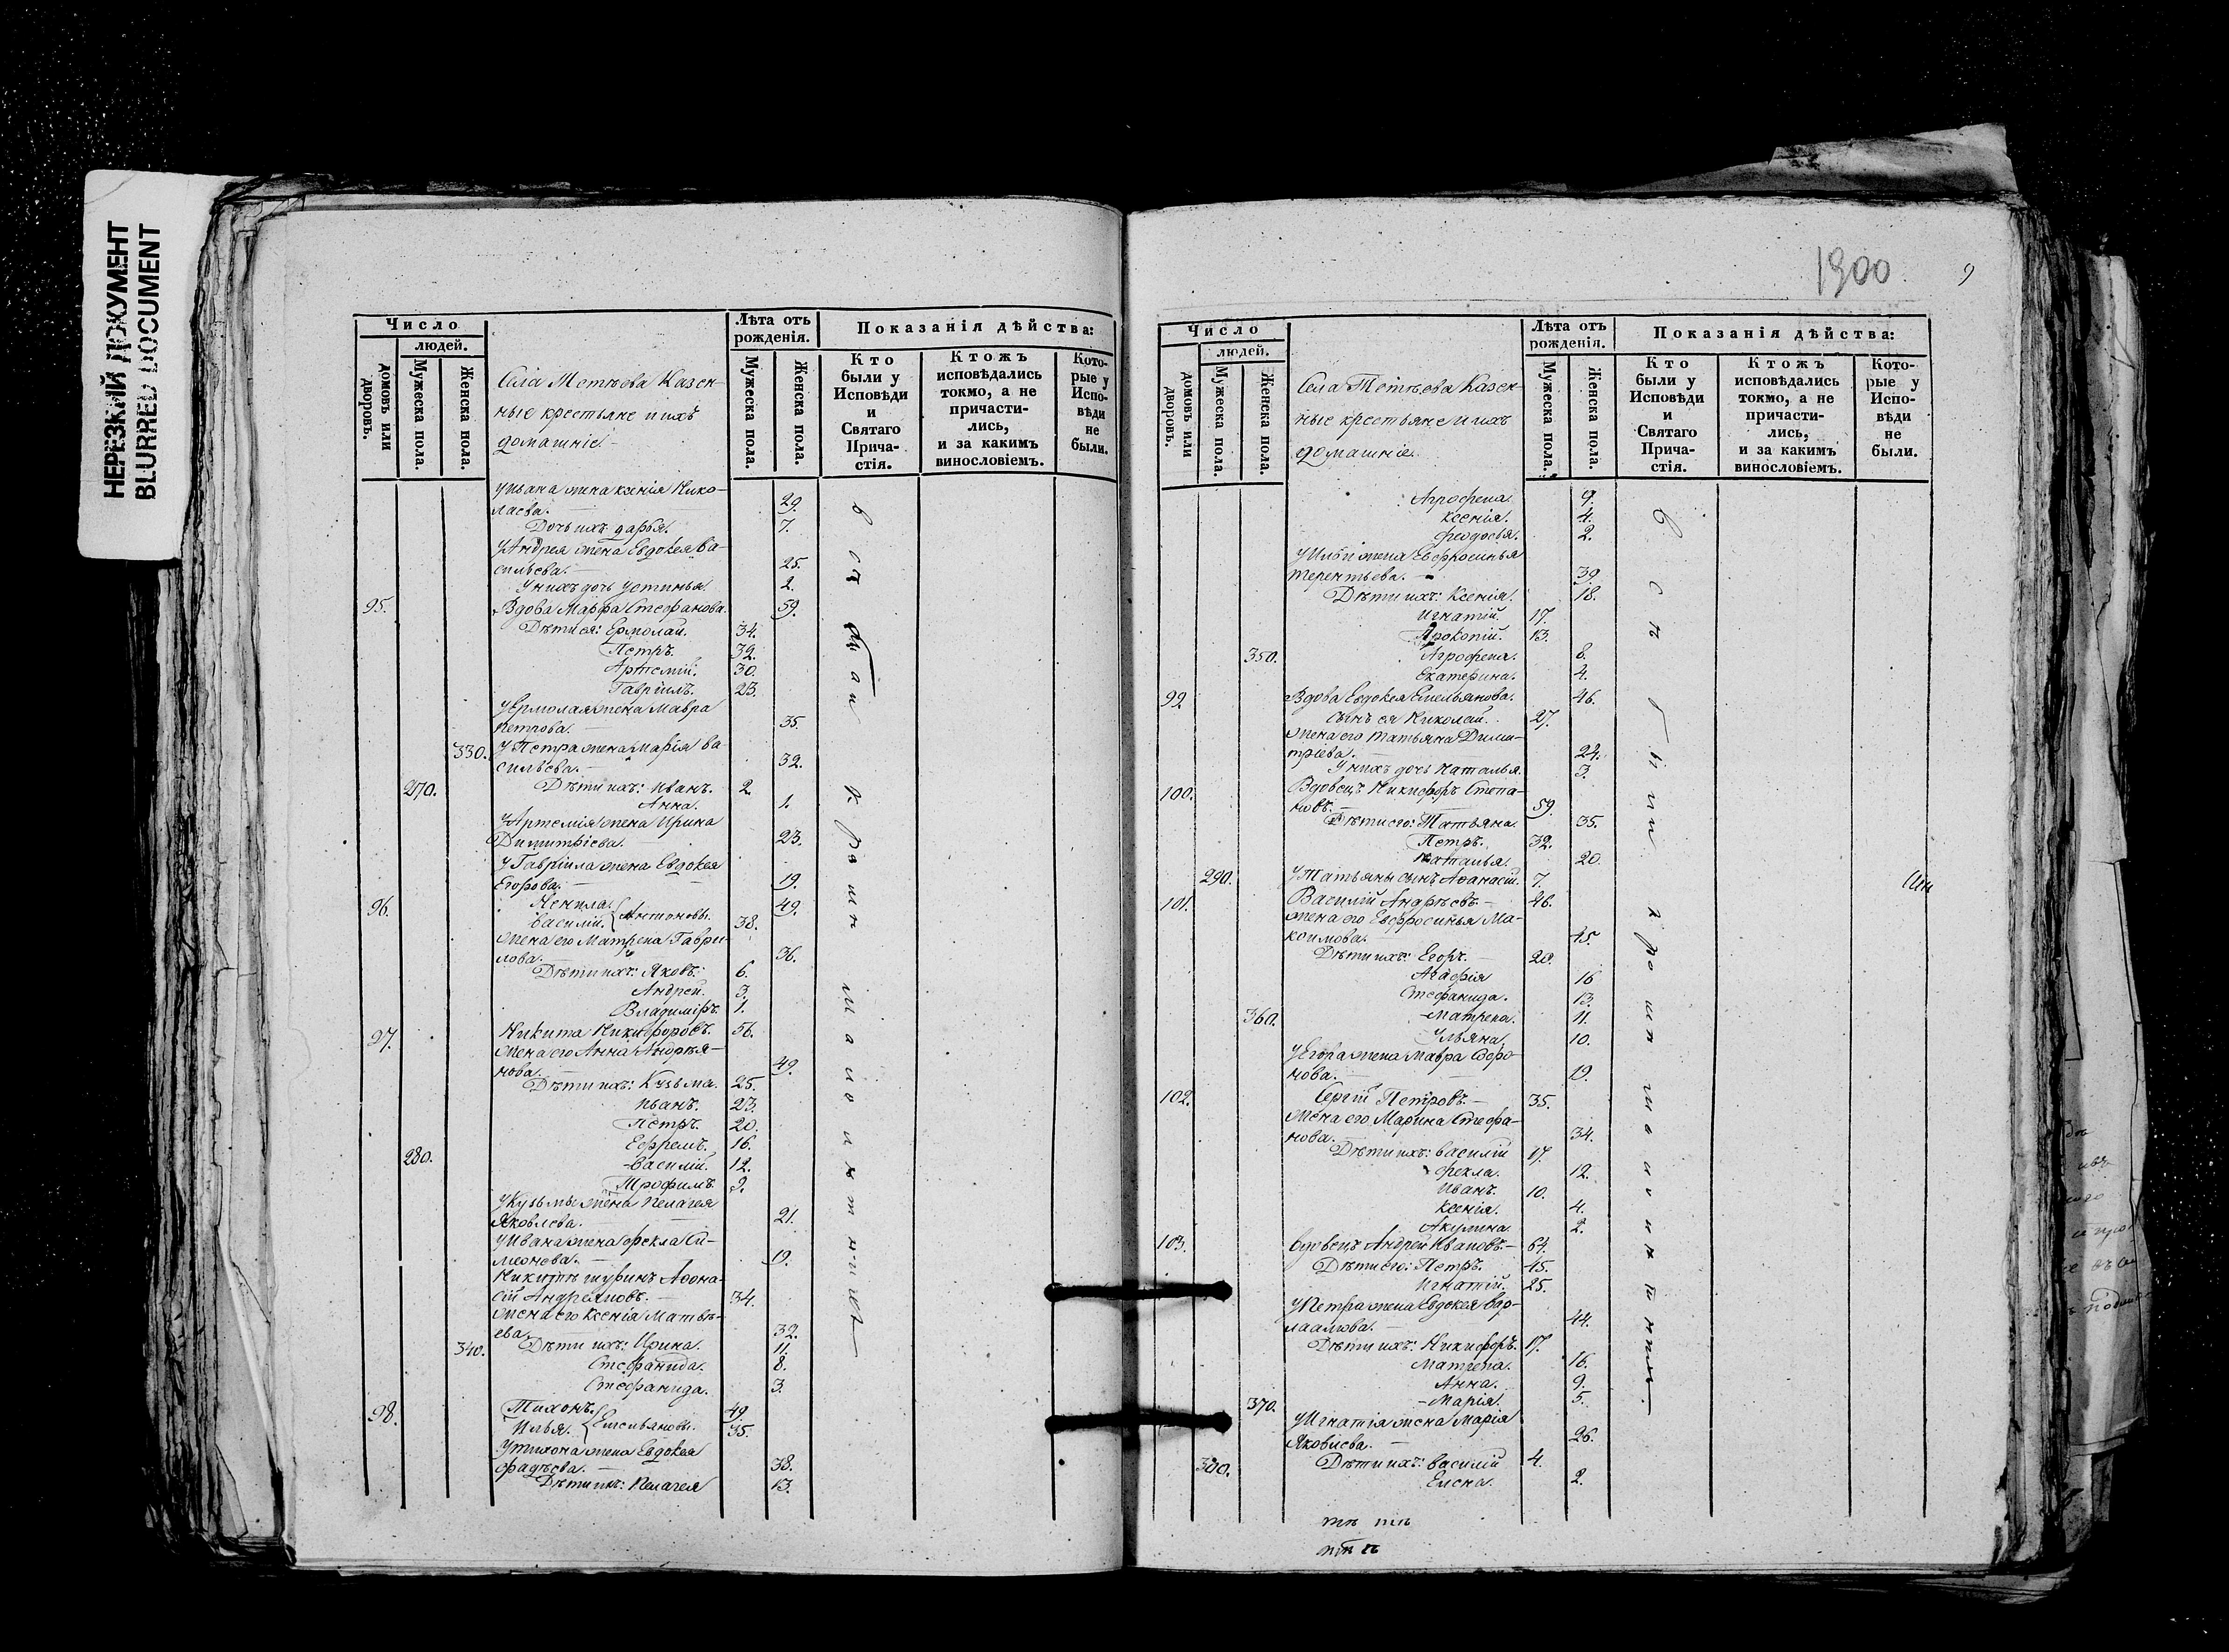 НЕРЕЗКИЙ ДОКУМЕНТ
BLURRED DOCUMENT
Число
людей.
домовъ или дворовъ.
Мужеска пола.
Женска пола.
Села Метнѣева Казен-
ные крестьяне и ихъ
домашніе
Лѣта отъ рожденія.
Мужеска пола.
Женска пола.
Показанія дѣйства:
Кто были у Исповѣди и Святаго Прича-стія.
Ктожъ исповѣдались токмо, а не причасти-лись, и за какимъ винословіемъ.
Кото-рые у Испо-вѣди не были.
У Ивана жена Ксенія Нико-
лаева. 29.
Дочь ихъ Дарья. 7.
У Андрея жена Евдокея Ва-
сильева. 25.
У нихъ дочь Устинья. 2.
95. Вдова Марфа Стефанова. 59.
Дѣти ея: Ермолай. 34.
Петръ. 32.
Артемій. 30.
Гавріилъ. 23.
У Ермолая жена Мавра
Петрова. 35.
330. У Петра жена Марія Ва-
сильева. 32.
270. Дѣти ихъ: Иванъ. 2.
Анна. 1.
У Артемія жена Ирина
Димитріева. 23.
У Гавріила жена Евдокея
Егорова. 19.
96. Ненила. 49.
Василій. Антоновы. 38.
жена его Матрена Гаври-
лова. 36.
Дѣти ихъ: Яковъ. 6.
Андрей. 3.
Владиміръ. 1.
97. Никита Никифоровъ. 56.
жена его Анна Андрея-
нова. 49.
Дѣти ихъ: Кузьма. 25.
Иванъ. 23.
Петръ. 20.
Ефремъ. 16.
280. Василій. 12.
Трофимъ. 9.
У Кузьмы жена Пелагея
Яковлева. 21.
У Ивана жена Фекла Си-
меонова. 19.
Никитѣ шуринъ Афона-
сій Андреяновъ. 34.
жена его Ксенія Матвѣ-
ева. 32.
340. Дѣти ихъ: Ирина. 11.
Стефанида. 8.
Стефанида. 3.
98. Тихонъ. 49.
Илья. Емельяновы. 35.
У Тихона жена Евдокея
Фадѣева. 38.
Дѣти ихъ: Пелагея 13.
1900
9
Число
людей.
домовъ или дворовъ.
Мужеска пола.
Женска пола.
Села Метнѣева Казен-
ные крестьяне и ихъ
домашніе.
Лѣта отъ рожденія.
Мужеска пола.
Женска пола.
Показанія дѣйства:
Кто были у Исповѣди и Святаго Прича-стія.
Ктожъ исповѣдались токмо, а не причасти-лись, и за какимъ винословіемъ.
Кото-рые у Испо-вѣди не были.
Агрофена. 9.
Ксенія. 4.
Феодосья. 2.
У Ильи жена Евфросинья
Терентьева. 39.
Дѣти ихъ: Ксенія. 18.
Игнатій. 17.
Прокопій. 13.
350. Агрофена. 8.
Екатерина. 4.
99 Вдова Евдокея Емельянова. 46.
Сынъ ея Николай. 27.
жена его Татьяна Дими-
тріева. 24.
У нихъ дочь Наталья. 3.
100. Вдовецъ Никифоръ Степа-
новъ. 59.
Дѣти его: Татьяна. 35.
Петръ. 32.
Наталья. 20
290. У Татьяны сынъ Афанасій. 7.
101. Василій Андреевъ. 46.
жена его Евфросинья Ма-
ксимова. 45.
Дѣти ихъ: Егоръ. 20.
Агафія 16
Стефанида. 13.
360. Матрена. 11.
Ульяна. 10.
У Егора жена Мавра Софро-
нова. 19.
102. Сергій Петровъ. 35.
жена его Марина Стефа-
нова. 34.
Дѣти ихъ: Василій 17.
Фекла. 12.
Иванъ. 10.
Ксенія. 4.
Акулина. 2.
103. Вдовецъ Андрей Ивановъ. 64.
Дѣти его: Петръ. 45.
Игнатій. 25.
У Петра жена Евдокея Вар-
лаамова. 44.
Дѣти ихъ: Никифоръ. 17.
Матрена. 16.
Анна. 9.
370. Марія. 5.
У Игнатія жена Марія
Яковлева. 26.
300. Дѣти ихъ: Василій 4.
Елена. 2.